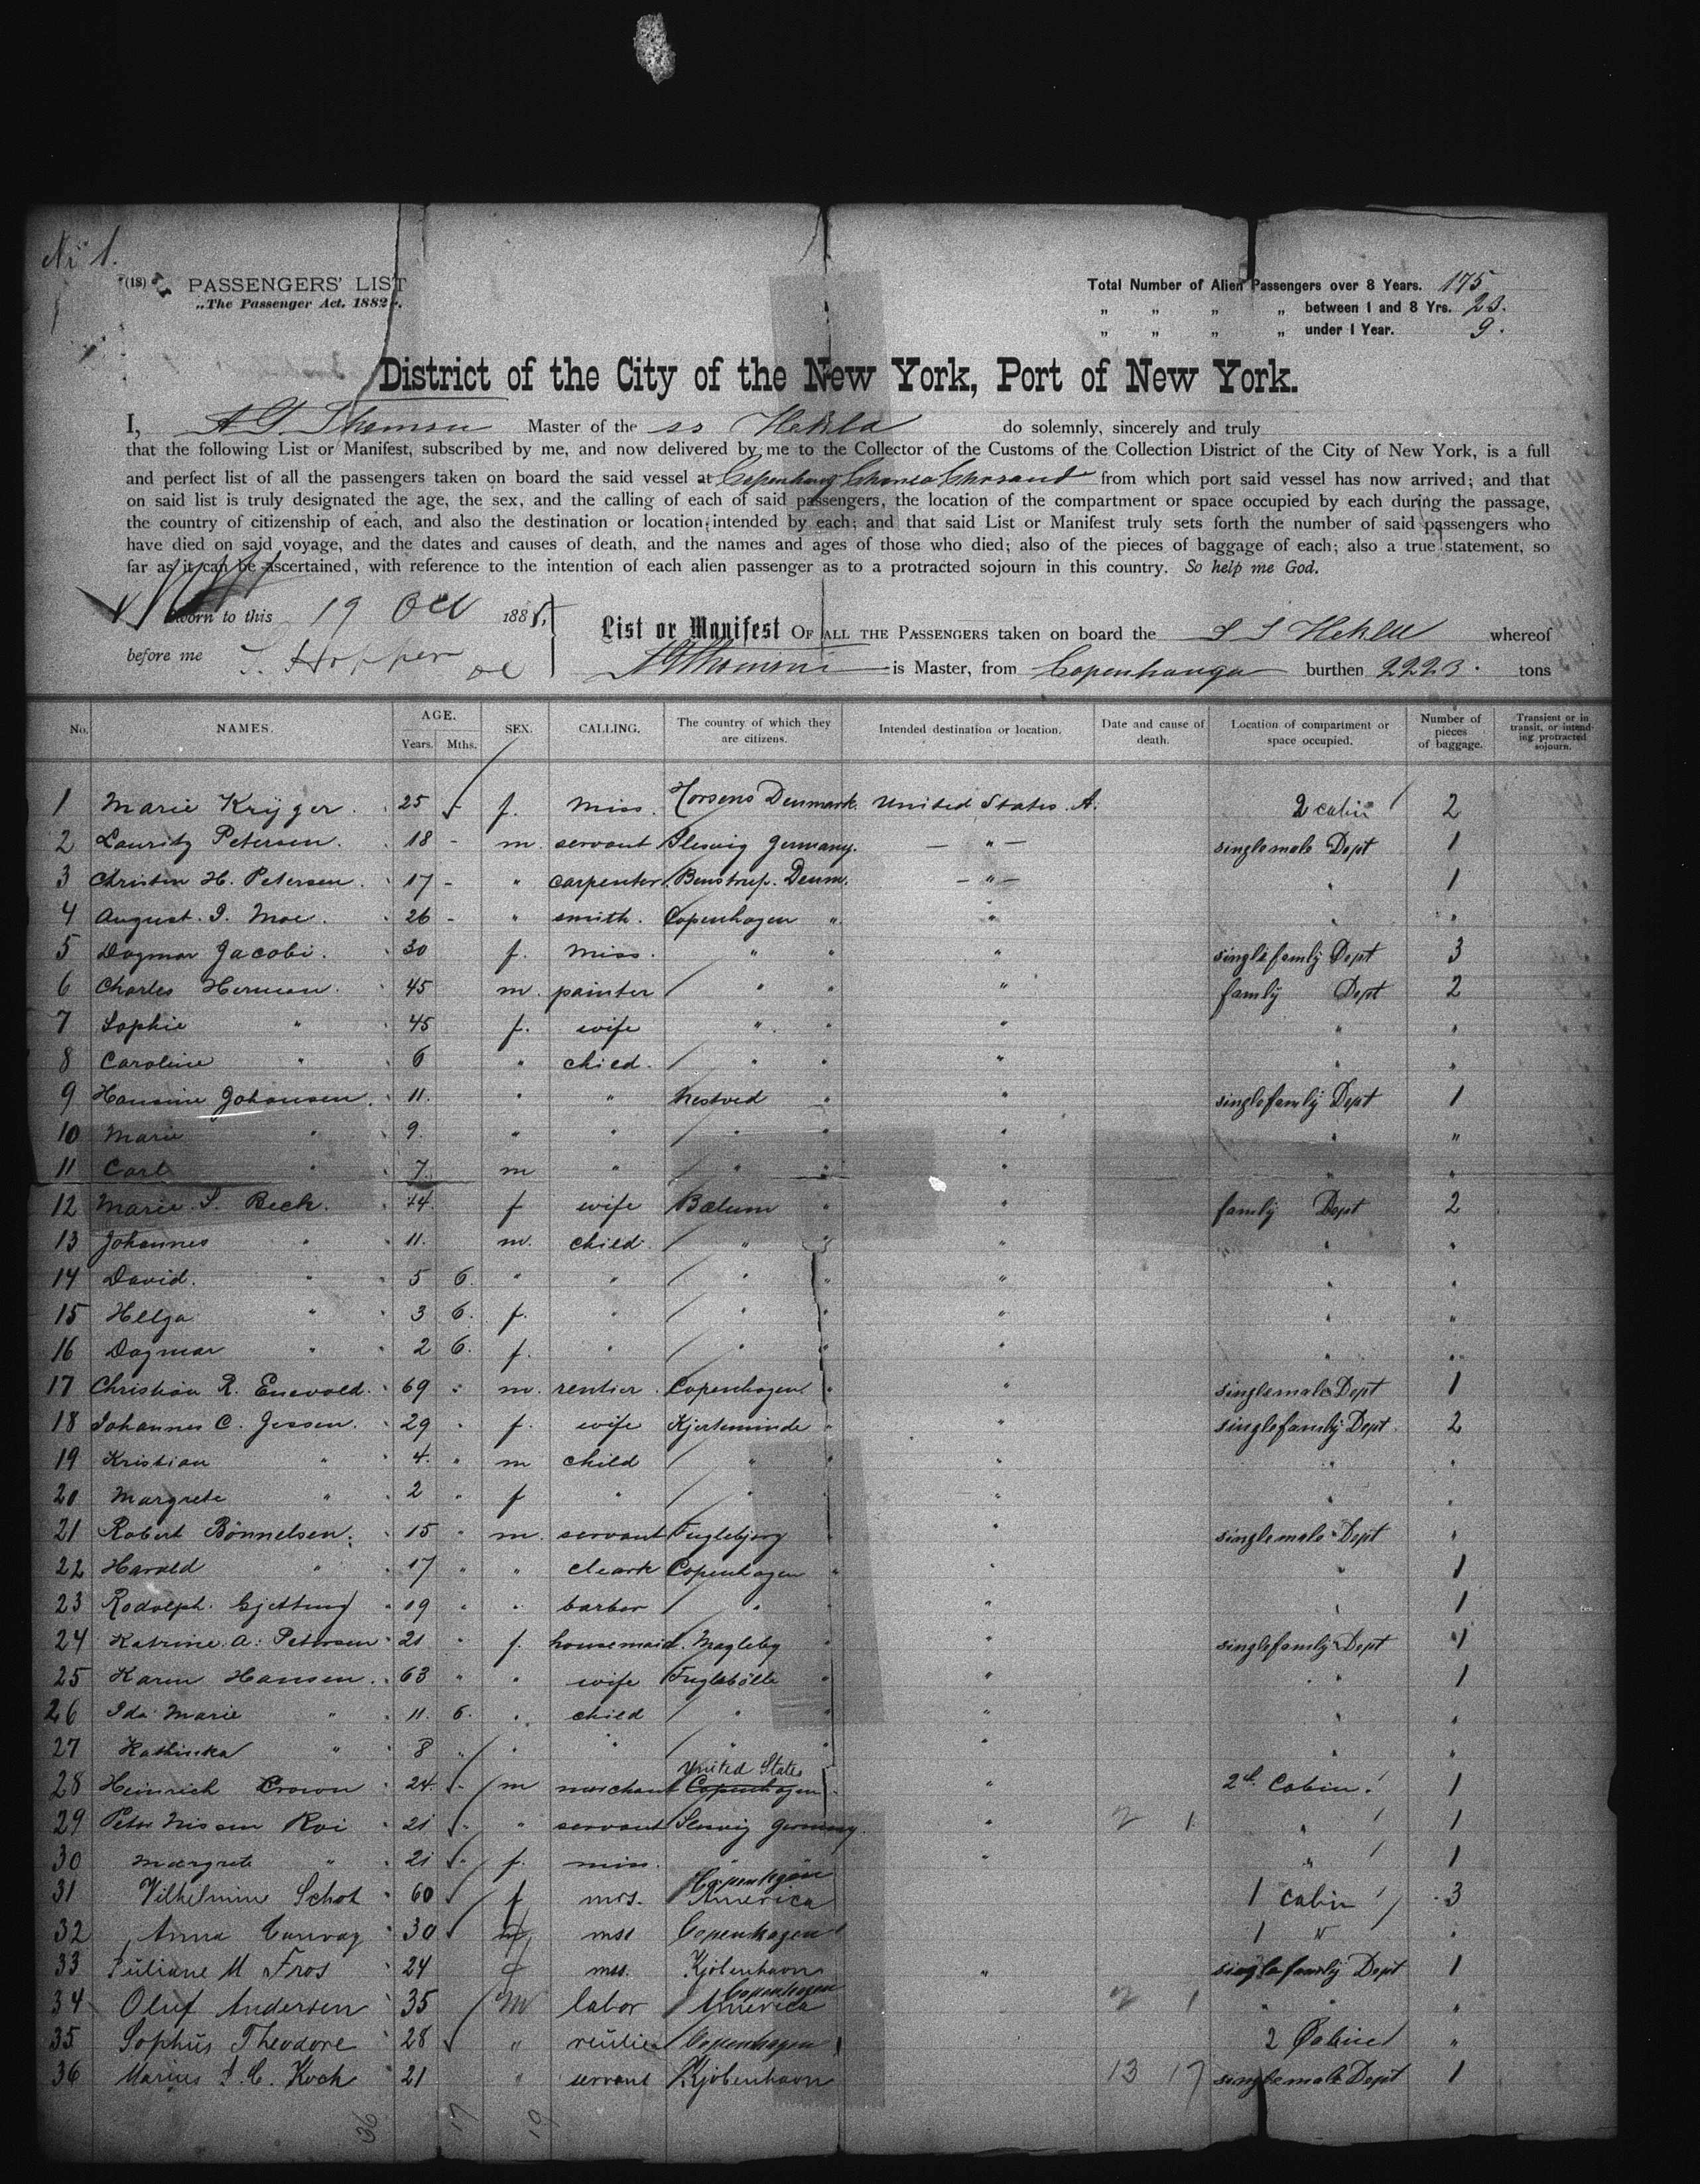 No 1.
(18) PASSENGERS' LIST
„The Passenger Act. 1882".
Total Number of Alien Passengers over 8 Years. 175
„ „ „ „ between 1 and 8 Yrs. 23.
„ „ „ „ under 1 Year. 9.
District of the City of the New York, Port of New York.
I, A G Thomsen Master of the ss Hekla do solemnly, sincerely and truly
that the following List or Manifest, subscribed by me, and now delivered by me to the Collector of the Customs of the Collection District of the City of New York, is a full
and perfect list of all the passengers taken on board the said vessel at from which port said vessel has now arrived; and that
on said list is truly designated the age, the sex, and the calling of each of said passengers, the location of the compartment or space occupied by each during the passage,
the country of citizenship of each, and also the destination or location intended by each; and that said List or Manifest truly sets forth the number of said passengers who
have died on said voyage, and the dates and causes of death, and the names and ages of those who died; also of the pieces of baggage of each; also a true statement, so
far as it can be ascertained, with reference to the intention of each alien passenger as to a protracted sojourn in this country. So help me God.
Sworn to this 19 Oct 188
before me Hopper
List or Manifest OF ALL THE PASSENGERS taken on board the S S Hekla whereof
is Master, from burthen 2223. tons
No. NAMES. AGE. Years. Mths. SEX. CALLING. The country of which they are citizens. Intended destination or location. Date and cause of death. Location of compartment or space occupied. Number of pieces of baggage. Transient or in transit, or intending protracted sojourn.
1 Marie Krÿger. 25 f. miss. Horsens Denmark. United States. A. 2 cabin 2
2 Lauritz Petersen. 18 - m. servant Slesvig Germany. — " — singlemale Dept 1
3 Christen H. Petersen. 17 - " carpenter. Benstrup. Denm. — " — " 1
4 August. I. Moe. 26 - " smith. Copenhagen " " " "
5 Dagmar Jacobi. 30 f. miss. " " " singlefamly Dept 3
6 Charles Herman. 45 m. painter " " " famly Dept 2
7 Sophie " 45 f. wife " " " " "
8 Caroline " 6 " child. " " " " "
9 Hansine Johansen. 11. " " Nestved " " singlefamly Dept 1
10 Marie " 9. " " " " " " "
11 Carl " 7. m " " " " " "
12 Marie. S. Beck. 44. f wife Bælum " " famly Dept 2
13 Johannes " 11. m. child. " " " " "
14 David. " 5 6. " " " " " " "
15 Helga " 3 6. f. " " " " " "
16 Dagmar " 2 6. f. " " " " " "
17 Christian R. Enevold. 69 " m. rentier. Copenhagen " " singlemale Dept 1
18 Johannes C. Jessen. 29 " f. wife Kjerteminde " " singlefamly Dept. 2
19 Kristian " 4. " m child " " " " "
20 Margrete " 2 " f " " " " " "
21 Robert Bönnelsen. 15 " m. servant Fuglebjerg " singlemale Dept "
22 Harald " 17 " " cleark Copenhagen " " " 1
23 Rodolph. Gjetting 19 " " barber " " " 1
24 Katrine. A. Petersen 21 " f. housemaid. Magleby " " singlefamly Dept 1
25 Karen Hansen. 63 " " wife Fuglebölle " " " 1
26 Ida Marie " 11. 6. " child " " " " "
27 Kathinka " 8 " " " " " " " "
28 Heinrich Crown 24. m merchant United States Copenhagen " 2d. Cabin. 1
29 Peter Nissen Roi 21 " servant Slesvig Germany. " 2 1 " 1
30 Margrete " 21 f. miss. " " " 1
31 Vilhelmine Schot 60 f mrs. Copenhagen America 1 Cabin 3
32 Anna 30 f Copenhagen 1 " "
33 Juliane M Fros 24 f Kjöbenhavn " singlefamly Dept 1
34 Oluf Andersen 35 m labor Copenhagen America 2 1 " " "
35 Sophus Theodore 28 " Copenhagen 2 Cabine "
36 Marius C. Koch 21 " servant Kjöbenhavn 13 17 singlemale Dept 1
36 17 19